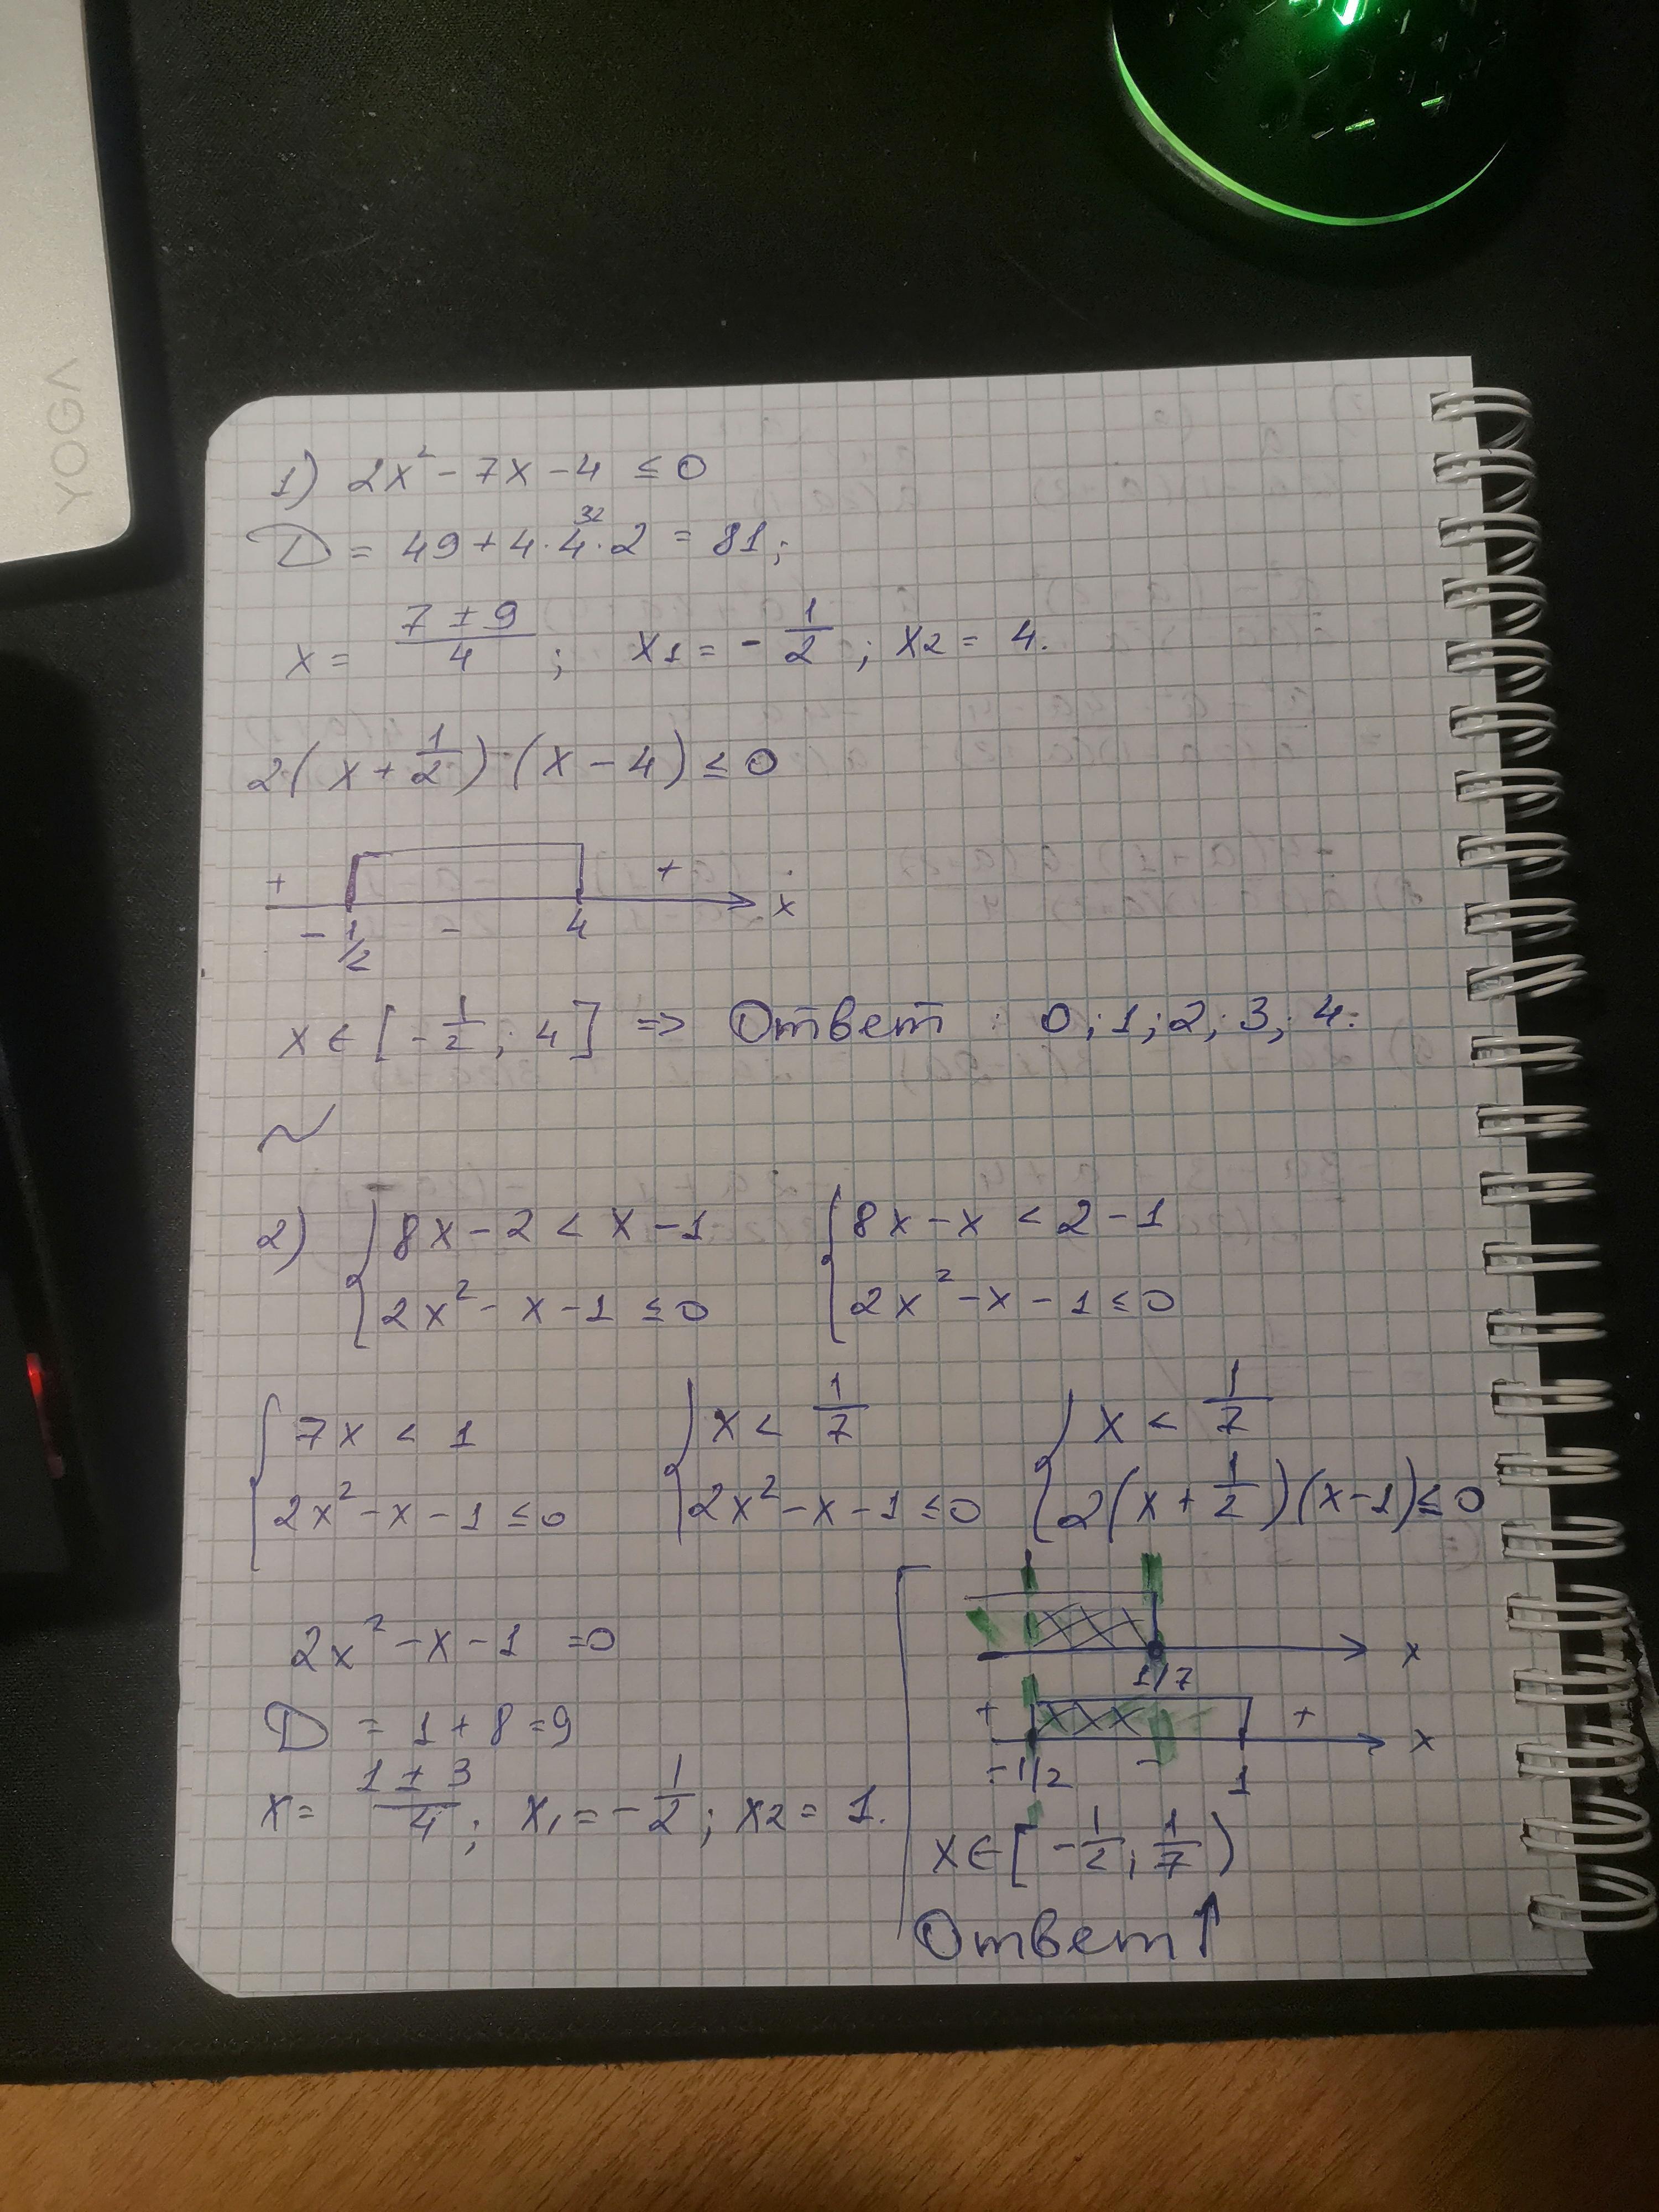 YOGA
1) 2x² - 7x - 4 ≤ 0
32
D = 49 + 4·4·2 = 81;
x = (7 ± 9)/4; x1 = -1/2; x2 = 4.
2(x + 1/2)·(x - 4) ≤ 0
+ +
x
-1/2 - 4
x ∈ [-1/2; 4] => Ответ: 0; 1; 2; 3; 4.
2) { 8x - 2 < x - 1 { 8x - x < 2 - 1
2x² - x - 1 ≤ 0 2x² - x - 1 ≤ 0
{ 7x < 1 { x < 1/7 { x < 1/7
2x² - x - 1 ≤ 0 2x² - x - 1 ≤ 0 2(x + 1/2)(x - 1) ≤ 0
2x² - x - 1 = 0
D = 1 + 8 = 9
x = (1 ± 3)/4; x1 = -1/2; x2 = 1.
x
1/7
+ +
x
-1/2 - 1
x ∈ [-1/2; 1/7)
Ответ ↑